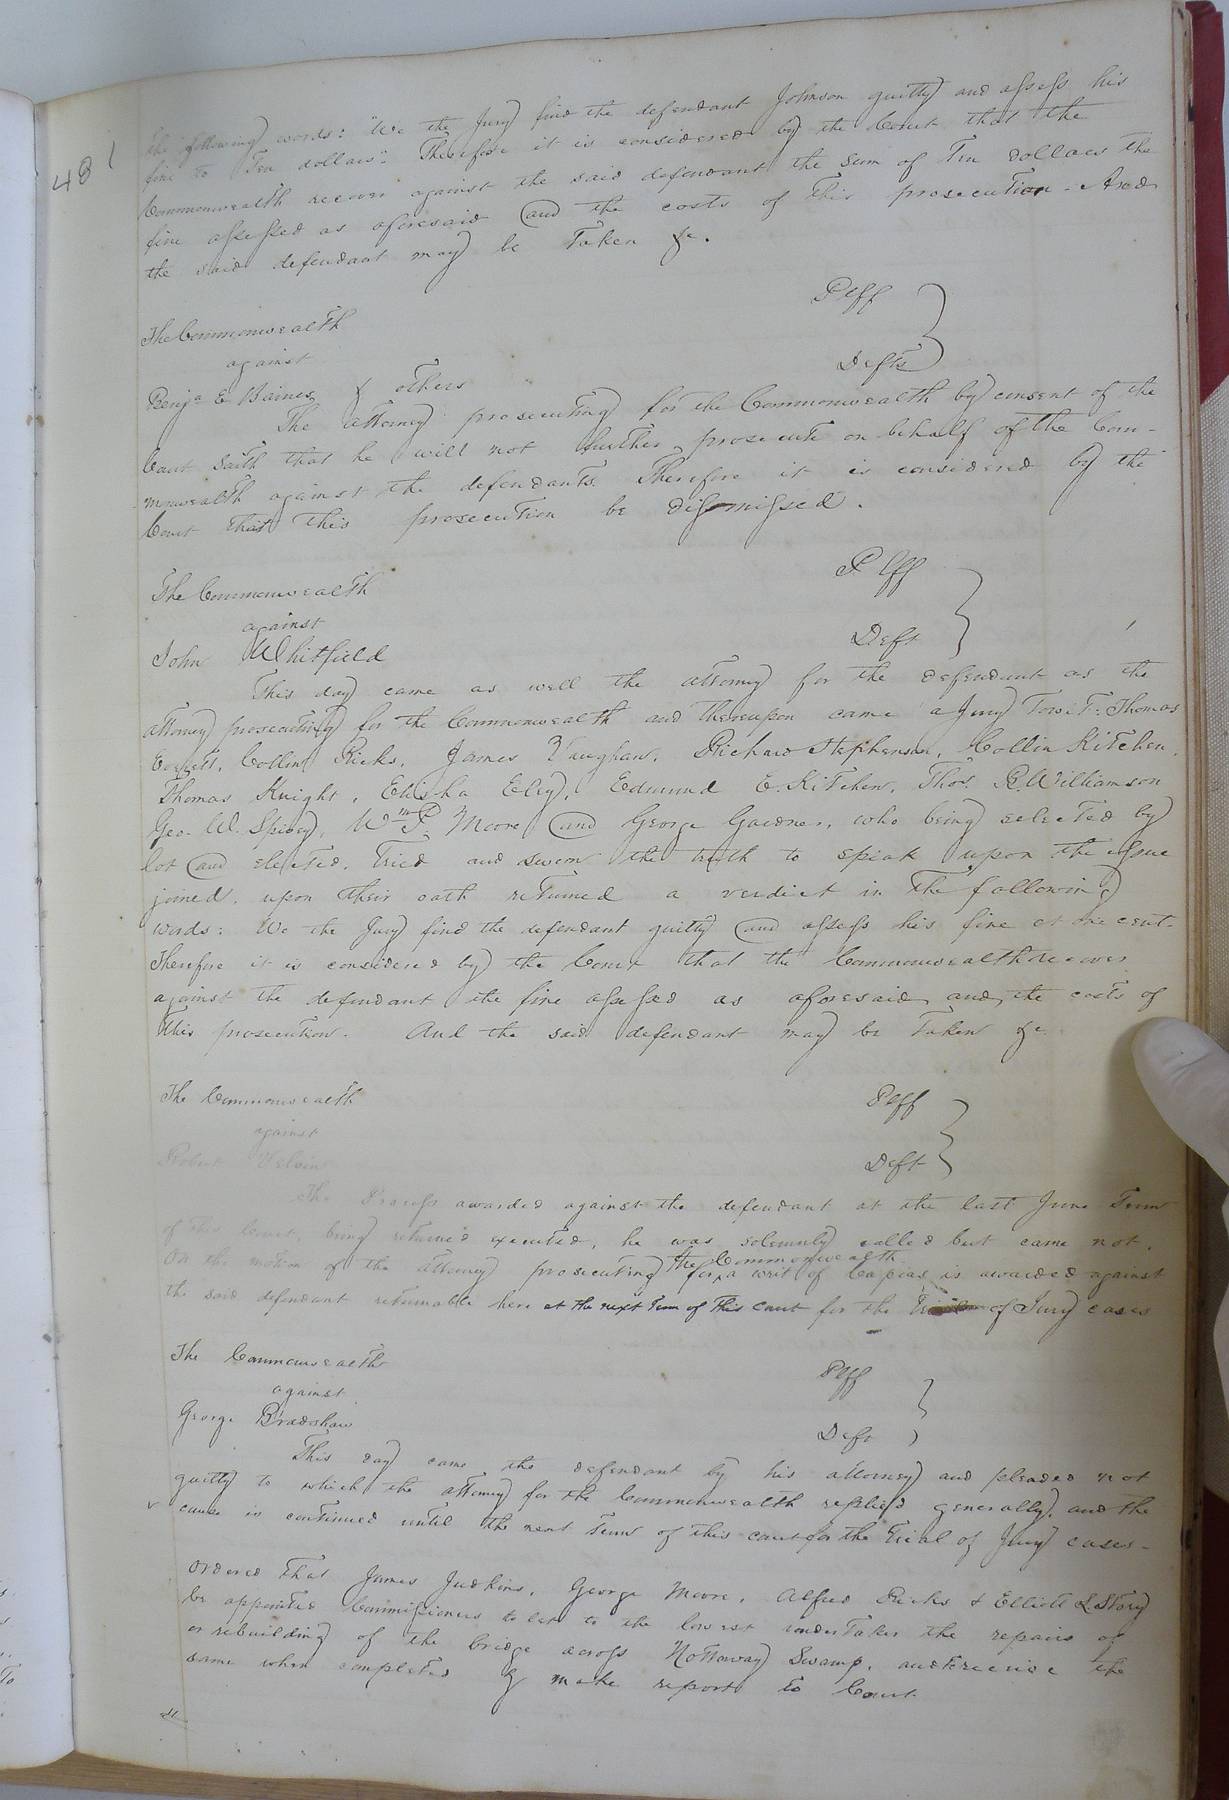 481
the following words: "We the Jury find the defendant Johnson guilty and assess his
fine to Ten dollars". Therefore it is considered by the Court that the
Commonwealth recover against the said defendant the sum of Ten dollars the
fine assessed as aforesaid and the costs of this prosecution - And
the said defendant may be Taken &c.
The Commonwealth Plff
against
Benja E Baines & others Defts
The attorney prosecuting for the Commonwealth by consent of the
Court saith that he will not further prosecute on behalf of the Com-
monwealth against the defendants. Therefore it is considered by the
Court that this prosecution be dismissed.
The Commonwealth Plff
against
John Whitfield Deft
This day came as well the attorney for the defendant as the
attorney prosecuting for the Commonwealth and thereupon came a Jury Towit: Thomas
Collin Ricks, James Vaughan, Richard Stephenson, Collin Kitchen,
Thomas Knight, Elisha Eley, Edmund E. Kitchen, Thos. R. Williamson
Geo. W. Spivey, Wm P. Moore and George Gardner, who being selected by
lot and elected, tried and sworn the truth to speak upon the issue
joined, upon their oath returned a verdict in the following
words: We the Jury find the defendant guilty and assess his fine at one cent.
Therefore it is considered by the Court that the Commonwealth recover
against the defendant the fine assessed as aforesaid and the costs of
this prosecution. And the said defendant may be Taken &c
The Commonwealth Plff
against
Robert Deft
The Process awarded against the defendant at the last June Term
of this Court, being returned executed, he was solemnly called but came not.
On the motion of the attorney prosecuting for the Commonwealth a writ of Capias is awarded against
the said defendant returnable here at the next Term of this Court for the Trial of Jury cases
The Commonwealth Plff
against
George Bradshaw Deft
This day came the defendant by his attorney and pleaded not
guilty to which the attorney for the Commonwealth replied generally, and the
cause is continued until the next Term of this court for the Trial of Jury cases-
Ordered that James Judkins, George Moore, Alfred Ricks & Elliott L Story
be appointed Commissioners to let to the lowest undertaker the repairs of
or rebuilding of the bridge across Nottoway Swamp, and receive the
same when completed & make report to Court.